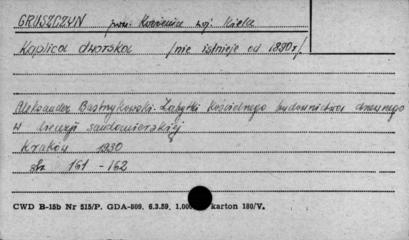 GRUSZCZYN pow. Kozienice woj. Kielce
Kaplica dworska /nie istnieje od 1890 r/
Aleksander Bastrzykowski. Zabytki kościelnego budownictwa drewnianego
w diecezji sandomierskiej
Kraków 1930
str 161 - 162
CWD B-15b Nr 515/P. GDA-809. 6.3.59. 1.000 karton 180/V.